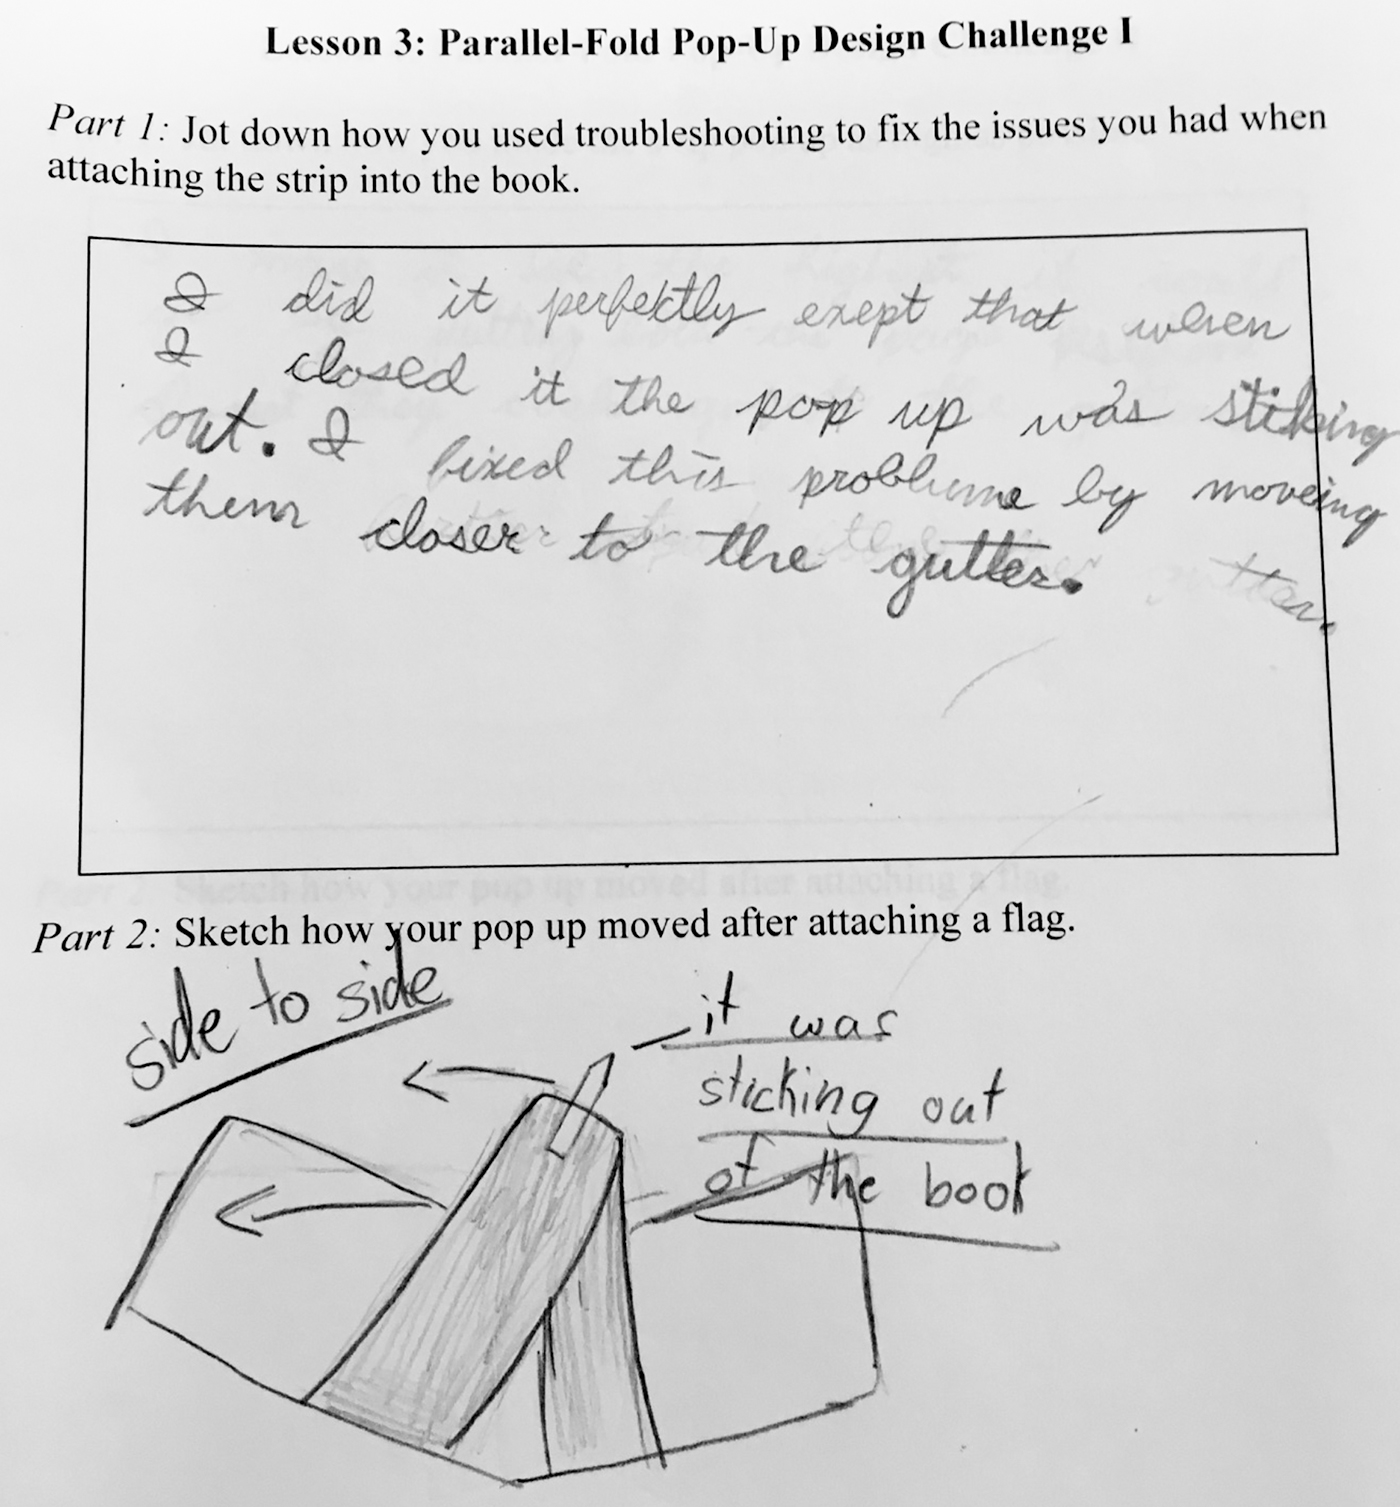 Lesson 3: Parallel-Fold Pop-Up Design Challenge I
Part 1: Jot down how you used troubleshooting to fix the issues you had when
attaching the strip into the book.
I did it perfektly exept that when
I closed it the pop up was stiking
out. I fixed this probleme by moveing
them closer to the gutter.
Part 2: Sketch how your pop up moved after attaching a flag.
side to side
it was
sticking out
of the book